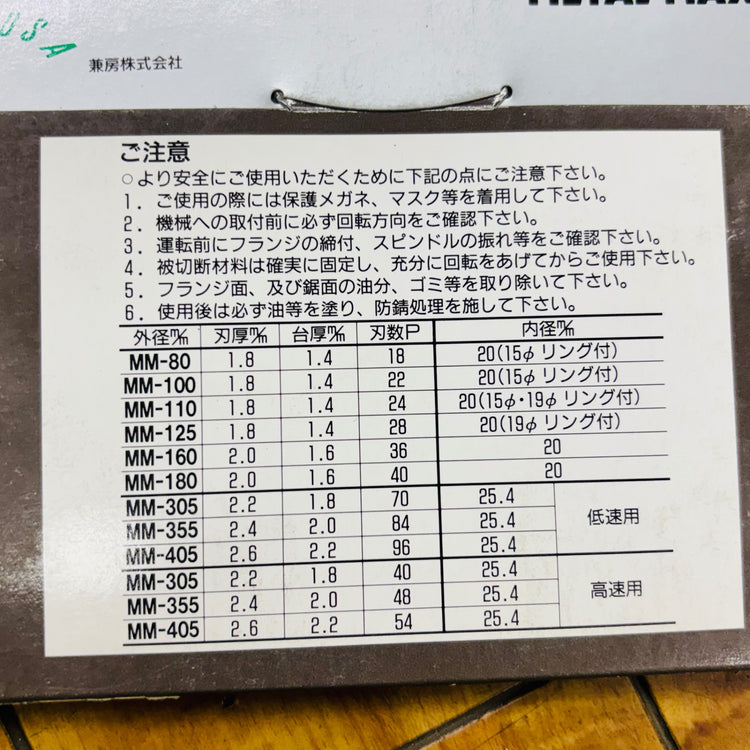 USA
兼房株式会社
ご注意
○より安全にご使用いただくために下記の点にご注意下さい。
1．ご使用の際には保護メガネ、マスク等を着用して下さい。
2．機械への取付前に必ず回転方向をご確認下さい。
3．運転前にフランジの締付、スピンドルの振れ等をご確認下さい。
4．被切断材料は確実に固定し、充分に回転をあげてからご使用下さい。
5．フランジ面、及び鋸面の油分、ゴミ等を取り除いて下さい。
6．使用後は必ず油等を塗り、防錆処理を施して下さい。
外径m/m 刃厚m/m 台厚m/m 刃数P 内径m/m
MM-80 1.8 1.4 18 20(15φリング付)
MM-100 1.8 1.4 22 20(15φリング付)
MM-110 1.8 1.4 24 20(15φ・19φリング付)
MM-125 1.8 1.4 28 20(19φリング付)
MM-160 2.0 1.6 36 20
MM-180 2.0 1.6 40 20
MM-305 2.2 1.8 70 25.4
MM-355 2.4 2.0 84 25.4 低速用
MM-405 2.6 2.2 96 25.4
MM-305 2.2 1.8 40 25.4
MM-355 2.4 2.0 48 25.4 高速用
MM-405 2.6 2.2 54 25.4